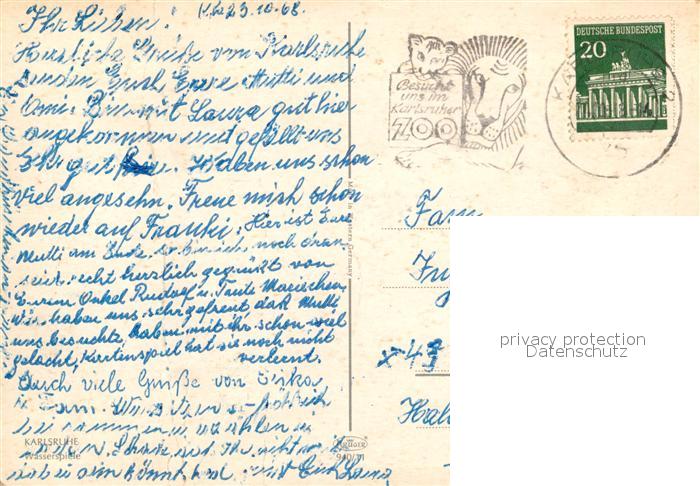 Ihr Lieben! Khe 23.10.68.
Herzliche Grüße von Karlsruhe
senden Euch Eure Mutti und
Omi. Bin mit Laura gut hier
angekommen und gefällt uns
sehr gut hier. Haben uns schon
viel angesehn. Freue mich schon
wieder auf Franki. Hier ist Eure
Mutti am Ende, so bin ich noch dran,
seid recht herzlich gegrüßt von
Eurem Onkel Rudolf u. Tante Mariechen
wir haben uns sehr gefreut, daß Mutti
uns besuchte, haben mit ihr schon viel
gelacht, Kartenspiel hat sie noch nicht
verlernt.
Auch viele Grüße von
u. Fam. Wir sitzen fröhlich
beisammen u. erzählen
Schade, daß Ihr nicht
dabei sein könnt
KARLSRUHE
Wasserspiele
940/31
Made in Western Germany
Besucht
uns im
Karlsruher
ZOO
DEUTSCHE BUNDESPOST
20
Fam.
privacy protection
Datenschutz